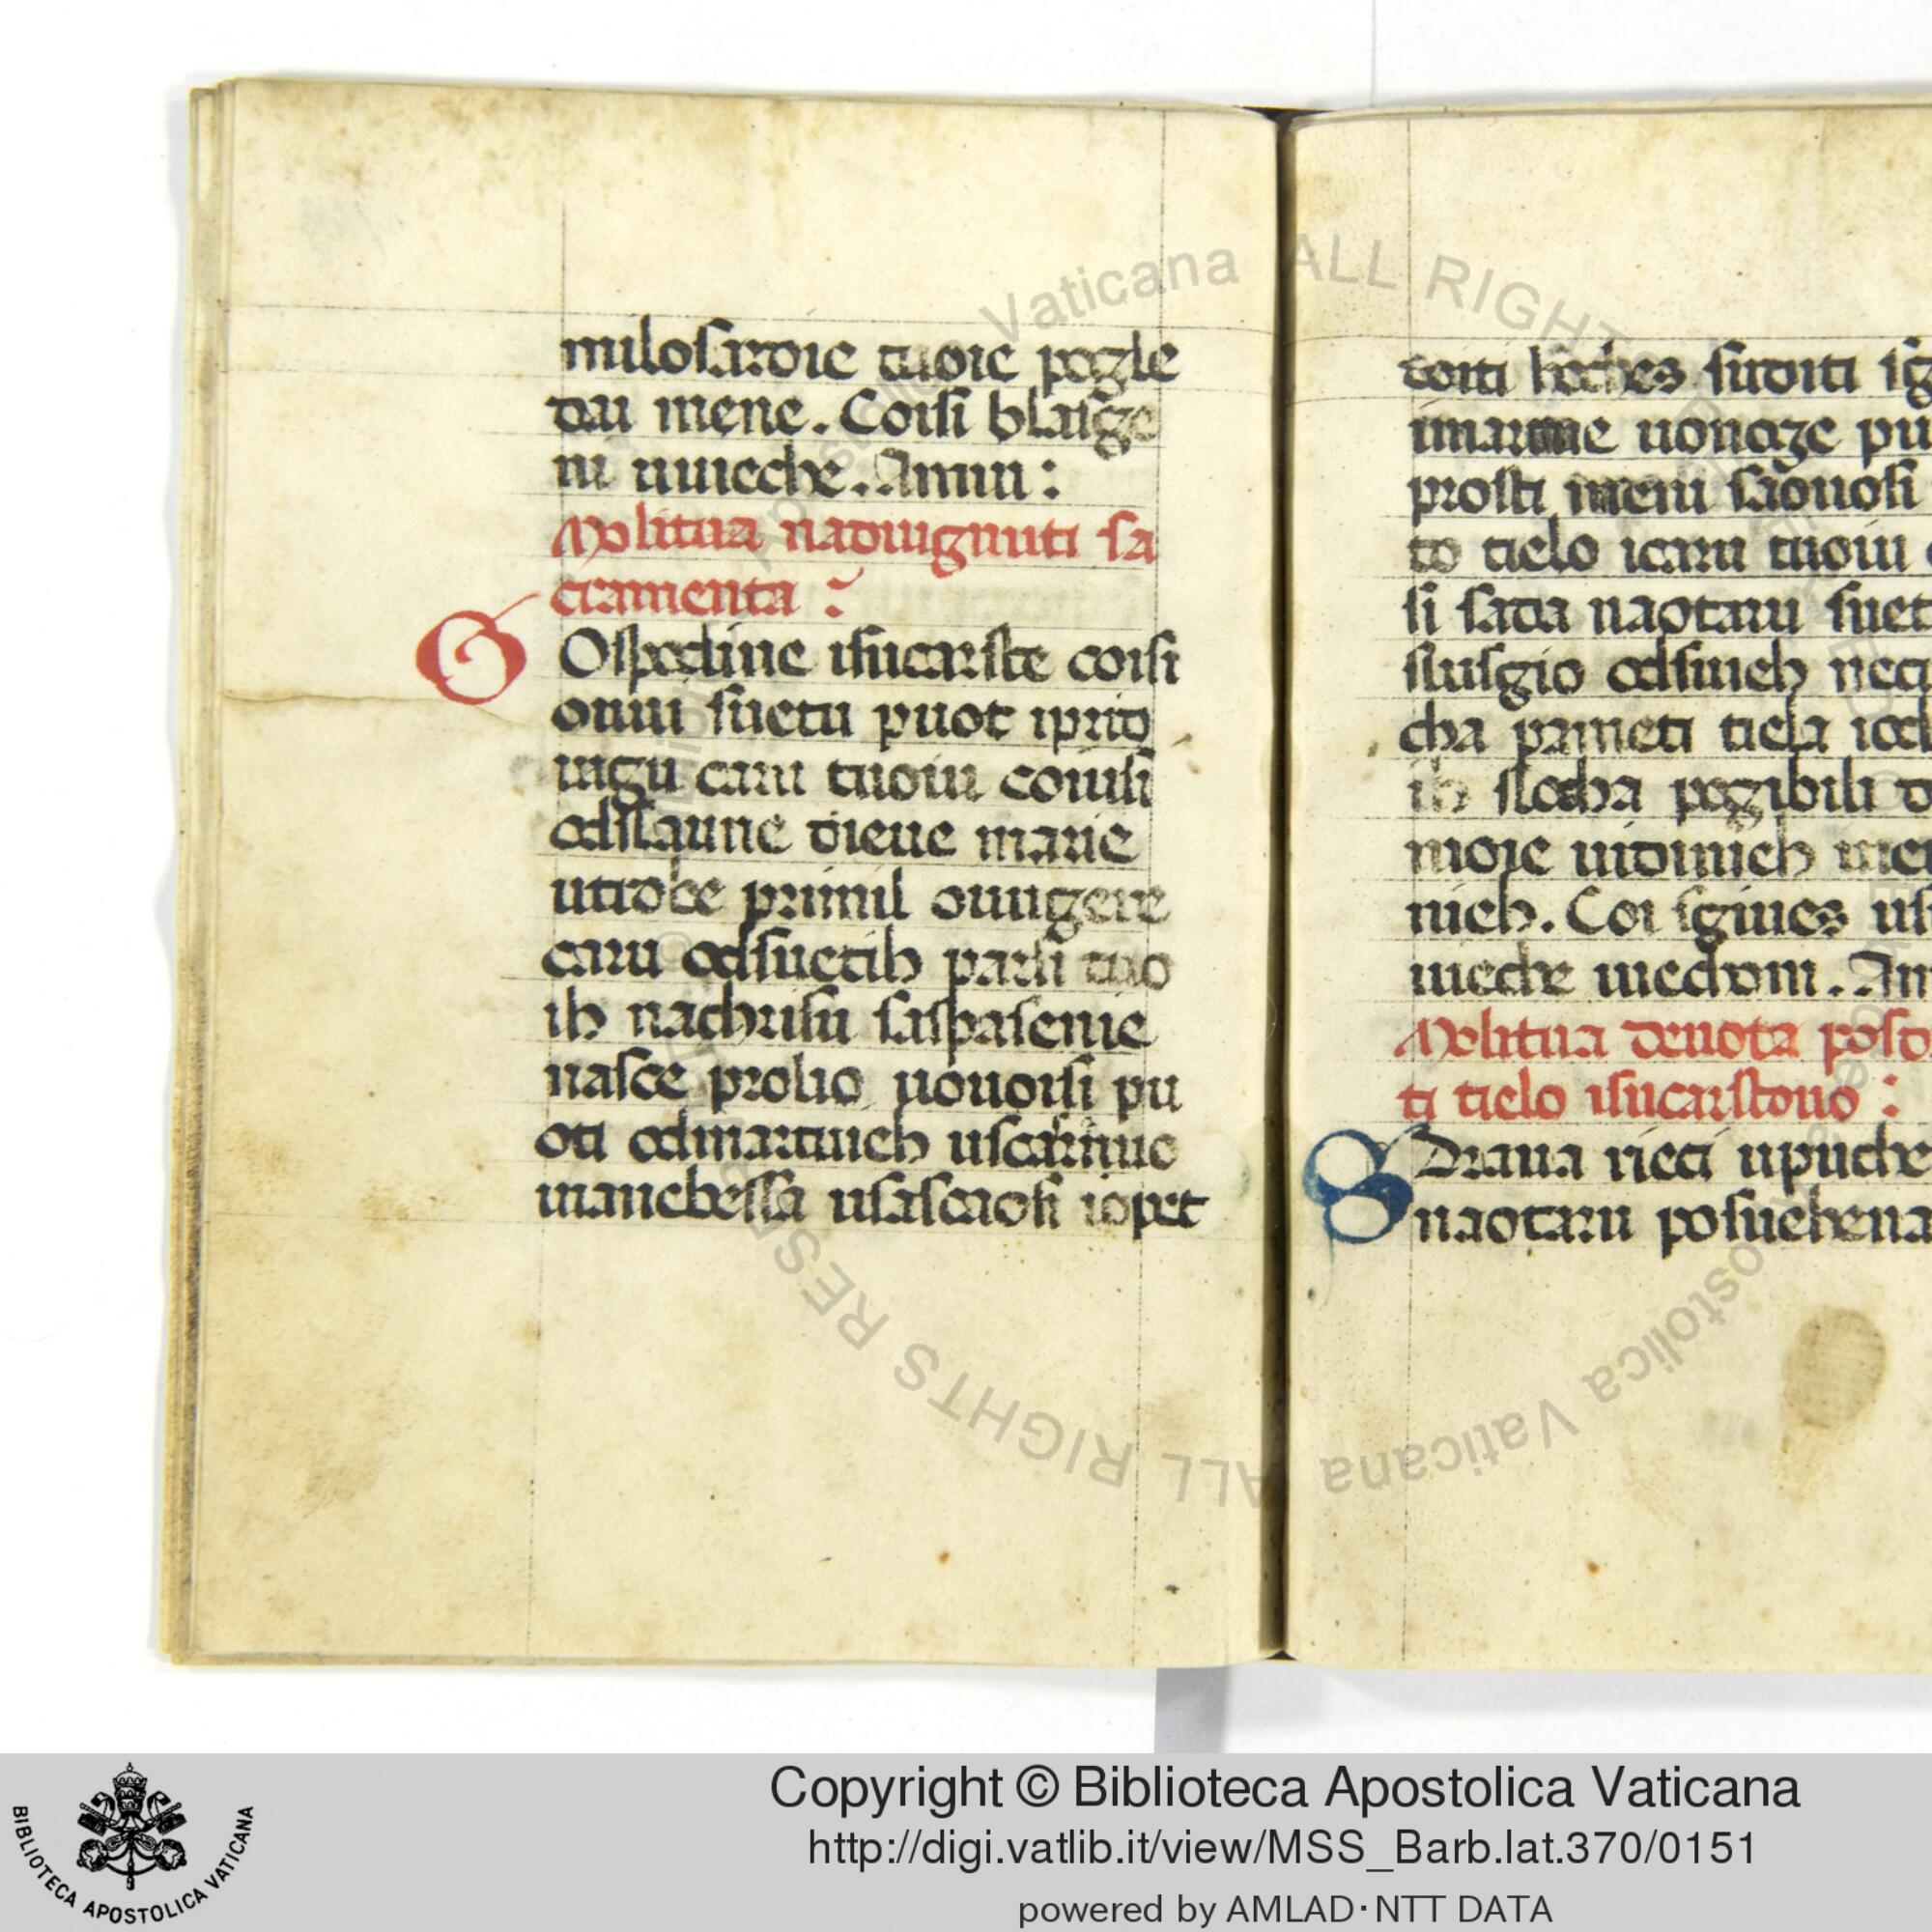 miloſardie tuoie pogle
dai mene. Coiſi blaiſge
ni uuieche. Amin:
Molitua naduignuti ſa
cramenta:
Goſpodine iſucarſte coiſi
ouui ſuetu puot iprid
ragu caru tuoiu coiuſi
odſlaune dieue marie
utrobe primil ouuigere
caru odſuetih parſi tuo
ih nachriſu ſaſpaſenie
naſce prolio uouoiſi pu
oti odmartuieh uſcarſnuo
uanebeſſa uſaſcaoſi iopet
doiti hoches ſuditi ſg
prosti meni
to tielo icaru tuoiu
ſi ſada naotaru ſuet
ſluſgio odſuueh
cha pameti tiela
ih ſlocha pogibili d
moie uidiuieh
nieh. Coi ſgiues uſ
uieche uiechom. Am
Molitua deuota poſd
ti tielo iſucarſtouo:
Sdraua rieci upuche
naotaru poſuehena
Vaticana ALL RIGHT
ALL RIGHTS RES
ostolica Vaticana
BIBLIOTECA APOSTOLICA VATICANA
Copyright © Biblioteca Apostolica Vaticana
http://digi.vatlib.it/view/MSS_Barb.lat.370/0151
powered by AMLAD·NTT DATA